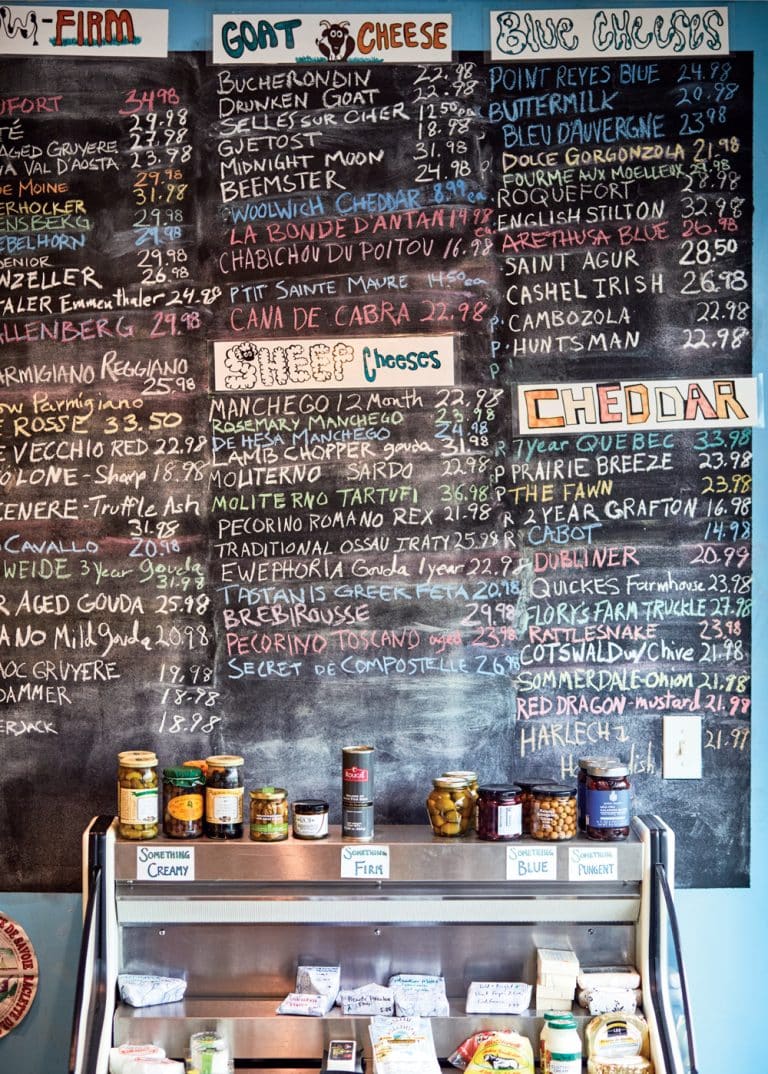 W-FIRM
UFORT 34.98
TÉ 29.98
AGED GRUYERE 27.98
A VAL D'AOSTA 23.98
DE MOINE 29.98
ERHOCKER 31.98
ENSBERG 29.98
EBELHORN 29.98
DENIOR 29.98
NZELLER 26.98
TALER Emmenthaler 24.98
ALLENBERG 29.98
ARMIGIANO REGGIANO
25.98
ow Parmigiano
E ROSSE 33.50
E VECCHIO RED 22.98
OLONE - Sharp 18.98
CENERE - Truffle Ash
31.98
CAVALLO 20.98
WEIDE 3 year gouda
31.98
R AGED GOUDA 25.98
ANO Mild gouda 20.98
OC GRUYERE 19.98
DAMMER 18.98
ERJACK 18.98
GOAT CHEESE
BUCHERONDIN 22.98
DRUNKEN GOAT 22.98
SELLES SUR CHER 12.50 ea
GJETOST 18.98
MIDNIGHT MOON 31.98
BEEMSTER 24.98
WOOLWICH CHEDDAR 8.99 ea
LA BONDE D'ANTAN 19.98
CHABICHOU DU POITOU 16.98
P'TIT SAINTE MAURE 14.50 ea
CANA DE CABRA 22.98
SHEEP Cheeses
MANCHEGO 12 Month 22.98
ROSEMARY MANCHEGO 23.98
DE HESA MANCHEGO 24.98
LAMB CHOPPER gouda 31.98
MOLITERNO SARDO 22.98
MOLITERNO TARTUFI 36.98
PECORINO ROMANO REX 21.98
TRADITIONAL OSSAU IRATY 25.98
EWEPHORIA Gouda 1 year 22.98
TASTANIS GREEK FETA 20.98
BREBIROUSSE 29.98
PECORINO TOSCANO aged 23.98
SECRET DE COMPOSTELLE 26.98
BLUE CHEESES
POINT REYES BLUE 24.98
BUTTERMILK 20.98
BLEU D'AUVERGNE 23.98
DOLCE GORGONZOLA 21.98
FOURME AUX MOELLEUX
ROQUEFORT 28.98
ENGLISH STILTON 32.98
ARETHUSA BLUE 26.98
SAINT AGUR 28.50
CASHEL IRISH 26.98
CAMBOZOLA 22.98
HUNTSMAN 22.98
CHEDDAR
7 year QUEBEC 33.98
PRAIRIE BREEZE 23.98
THE FAWN 23.98
2 YEAR GRAFTON 16.98
CABOT 14.98
DUBLINER 20.99
QUICKES Farmhouse 23.98
FLORY'S FARM TRUCKLE 27.98
RATTLESNAKE 23.98
COTSWALD w/ Chive 21.98
SOMMERDALE-Onion 21.98
RED DRAGON-mustard 21.98
HARLECH 21.99
SOMETHING CREAMY
SOMETHING FIRM
SOMETHING BLUE
SOMETHING PUNGENT